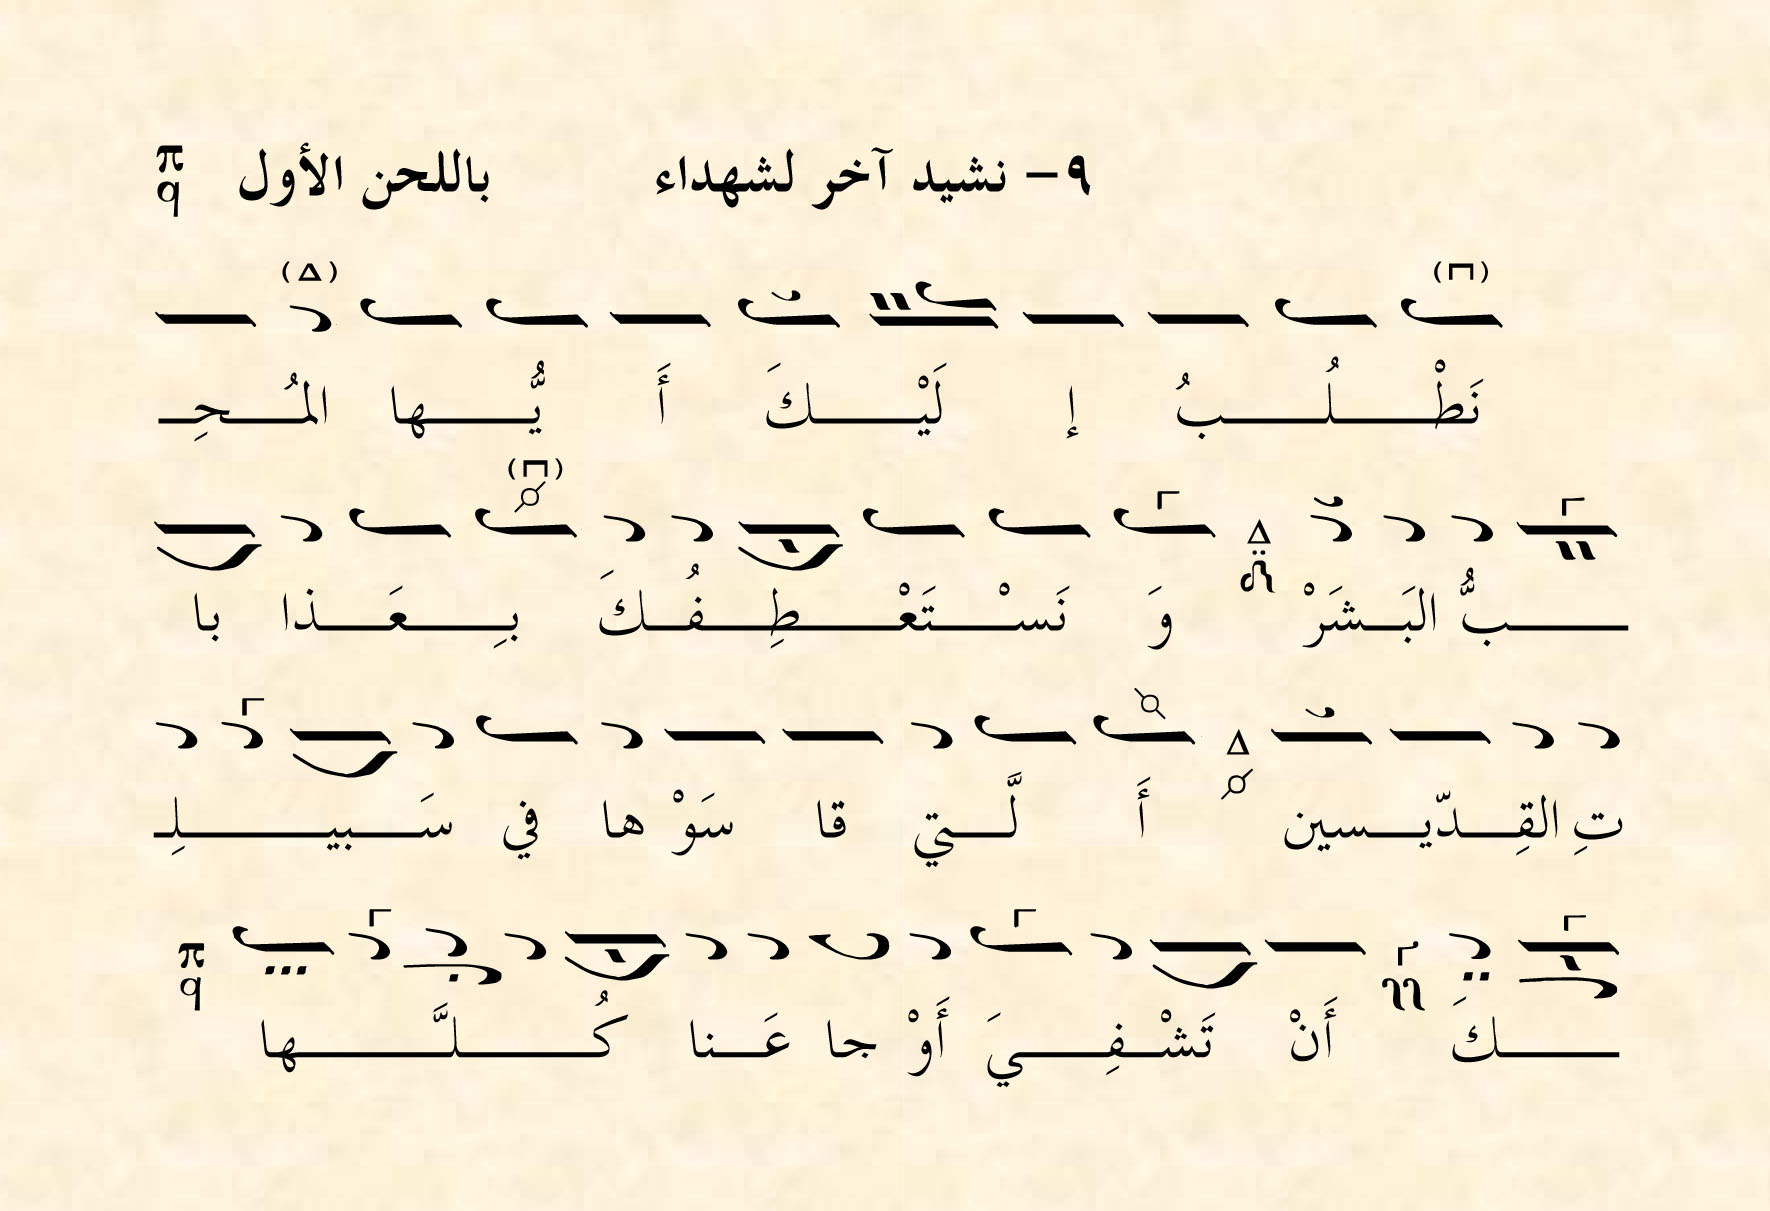 ٩– نشيد آخر لشهداء باللحن الأول π q
(Π) (Δ)
نَطْلُبُ إلَيْكَ أَيُّها المُحِـ
(Π)
ـبُّ البَشَرْ Δ وَ نَسْتَعْطِفُكَ بِعَذابا
تِ القِدّيسين Δ أَلَّتي قاسَوْها في سَبيلِـ
π q
ـكَ أَنْ تَشْفِيَ أَوْجاعَنا كُلَّها